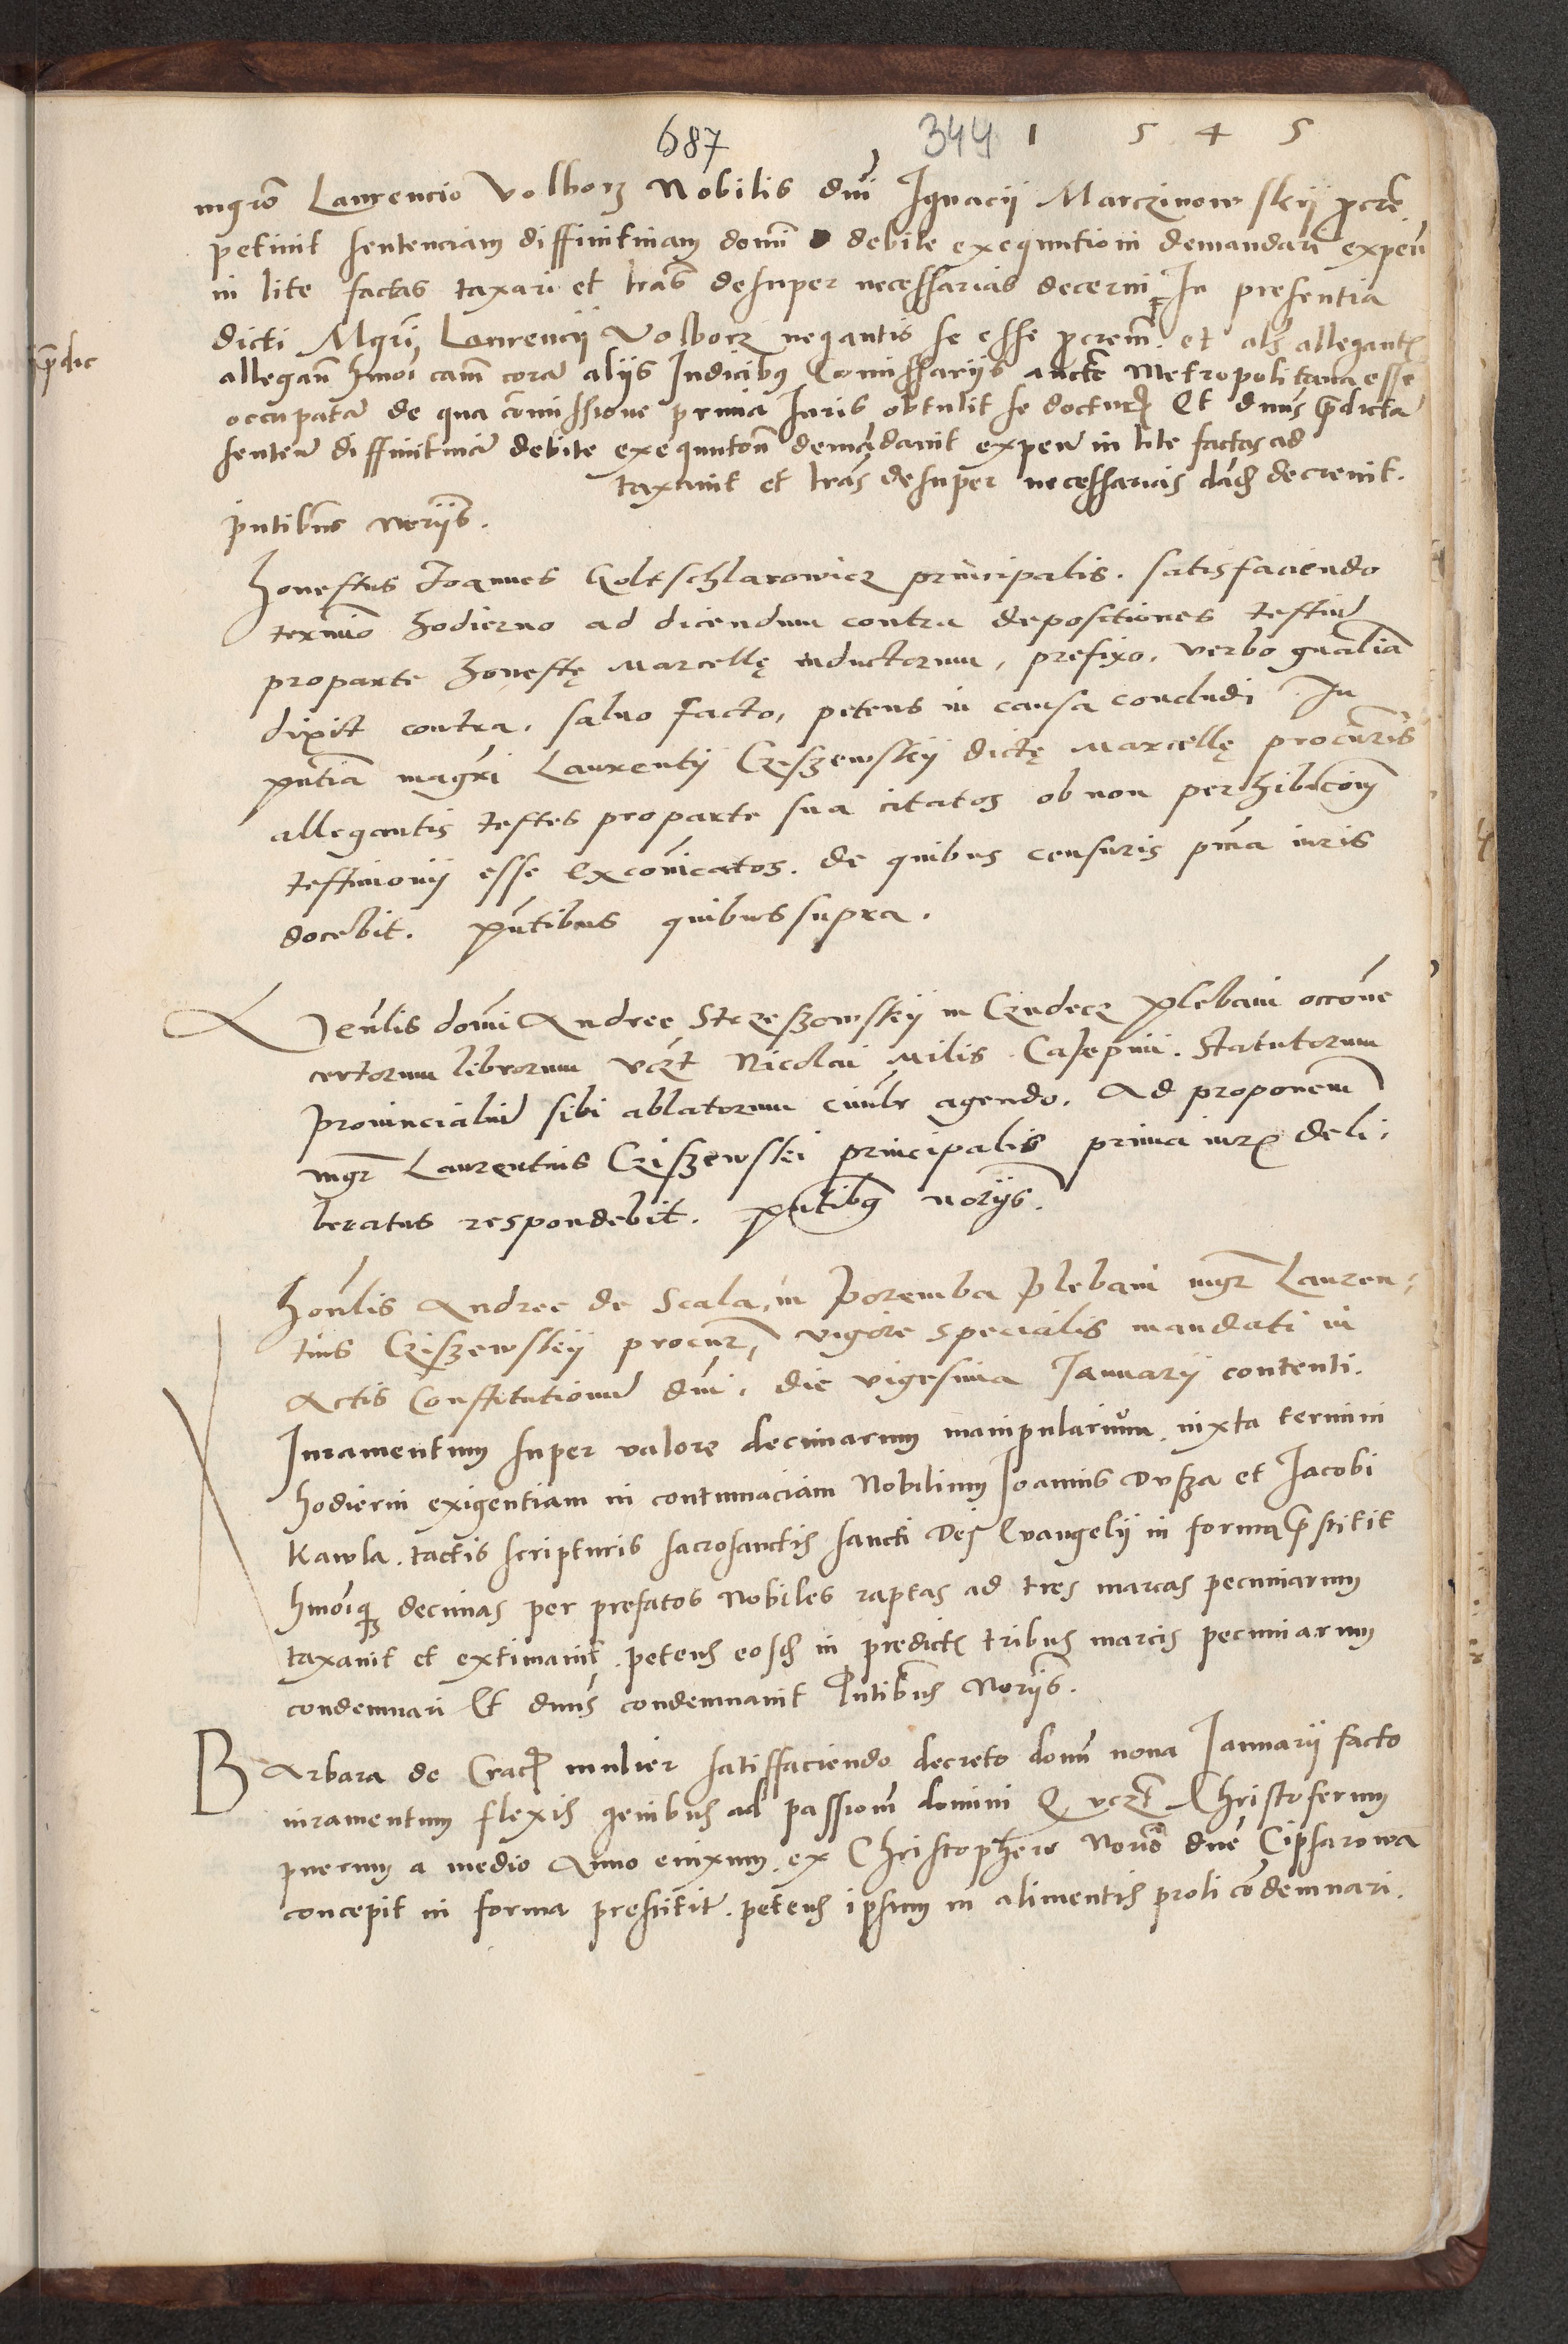 687 344 1 5 4 5
mgrō Laurencio Volborz Nobilis dni Ignacii Marczinowskij pcre
petiuit sentenciam diffinitiuam domi debite exequutioni demandari expeñ
in lite factas taxari et lras desuper necessarias decerni In presentia
dicti Mgri Laurencij Volborz negantis se esse pcrem et als allegant
allegañ hmoi cam corā aliis Iudicibus Comissariis aucte Metropolitana esse
occupatā de qua comissione prima Iuris obtulit se docturū Et dnus p̄dictā
senteñ diffinitiuā debite exequutoñ demādauit expeñ in lite factas ad
taxauit et lras desuper necessarias dād decreuit.
pntibus Noriis.
Honestus Ioannes Goltschlarowicz principalis. satisfaciendo
termio hodierno ad dicendum contra depositiones testiū
pro parte honestę Marcellę inductorum, prefixo, verbo gnaliā
dixit contra, saluo facto, petens in causa concludi In
pntia magri Laurentij Czeszewskij dictę Marcellę procuris
allegantis testes pro parte sua citatos ob non perhibicōem
testimonij esse excoicatos. de quibus censuris pma iuris
docebit. pntibus quibus supra.
Venlis domi Andree Strzeszowskij in Czudecz plebani occōne
certorum librorum vczt Nicolai Milis. Calepini. Statutorum
prouincialiū sibi ablatorum ciuilr agendo. Ad proponem
mgr Laurentius Cziszewski principalis prima iurs deli,
beratus respondebit. pntibus noriis.
Honlis Andree de Scala, in Poremba plebani mgr Lauren,
tius Cziszewskij procur, vigore specialis mandati in
Actis Constitutionū dni, die vigesima Ianuarij contenti.
Iuramentum super valore decimarum manipularium. iuxta termini
hodierni exigentiam in contumaciam Nobilium Ioannis Dusza et Iacobi
Kawla. tactis scripturis sacrosanctis sancti Dei Euangelij in forma p̄stitit
hmoiq decimas per prefatos Nobiles raptas ad tres marcas pecuniarum
taxauit et extimauit. petens eosd in predict tribus marcis pecuniarum
condemnari Et dnus condemnauit Pntibus Noriis.
Barbara de Crac mulier satisfaciendo decreto domi nona Ianuarij facto
iuramentum flexis genibus ad passiom domini Q vczt Christoferum
puerum a medio Anno enixum. ex Christophero Norio dne Cipsarowa
concepit in forma prestitit. petens ipsum in alimentis proli cōdemnari.
p̄dic